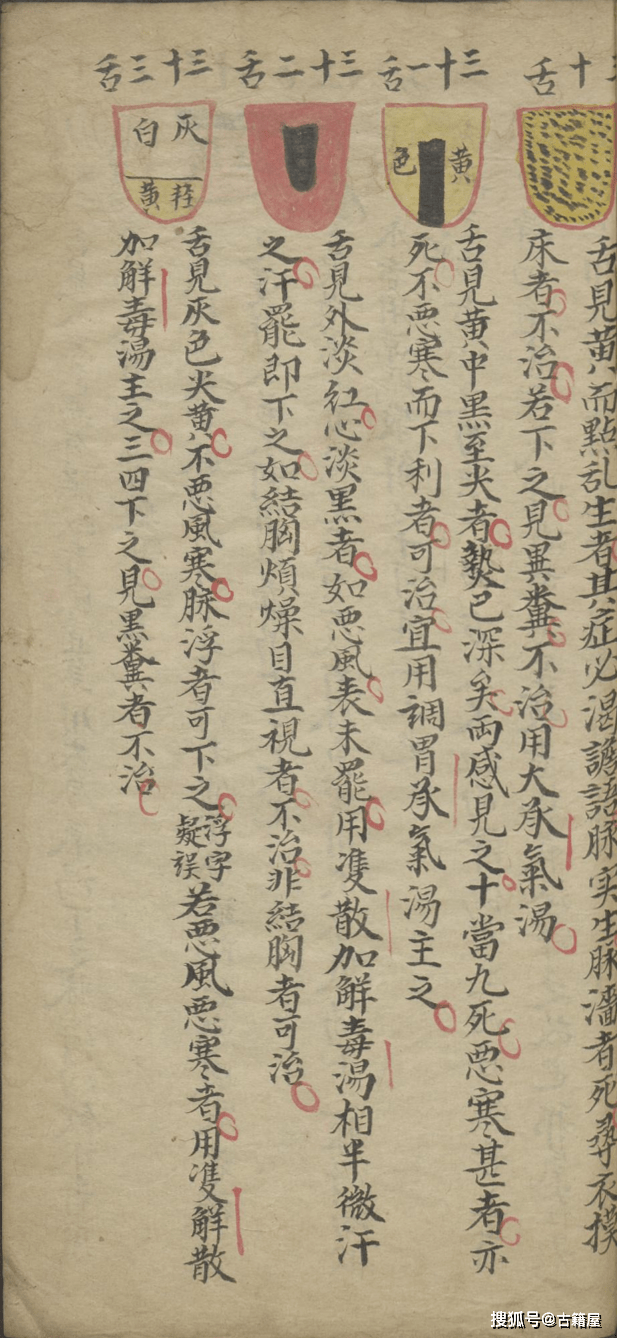 三十舌
舌見黄而點乱生者其症必渴譫語脉实生脉濇者死尋衣摸
床者不治若下之見異糞不治用大承氣湯
三十一舌
黄色
舌見黄中黒至尖者熱已深矣両感見之十當九死悪寒甚者亦
死不悪寒而下利者可治宜用調胃承氣湯主之
三十二舌
舌見外淡紅心淡黒者如悪風表未罷用隻散加觧毒湯相半微汗
之汗罷即下之如結胸煩燥目直視者不治非結胸者可治
三十三舌
灰白
軽黄
舌見灰色尖黄不悪風寒脉浮者可下之浮字疑誤若悪風悪寒者用隻觧散
加觧毒湯主之三四下之見黒糞者不治
搜狐号@古籍屋